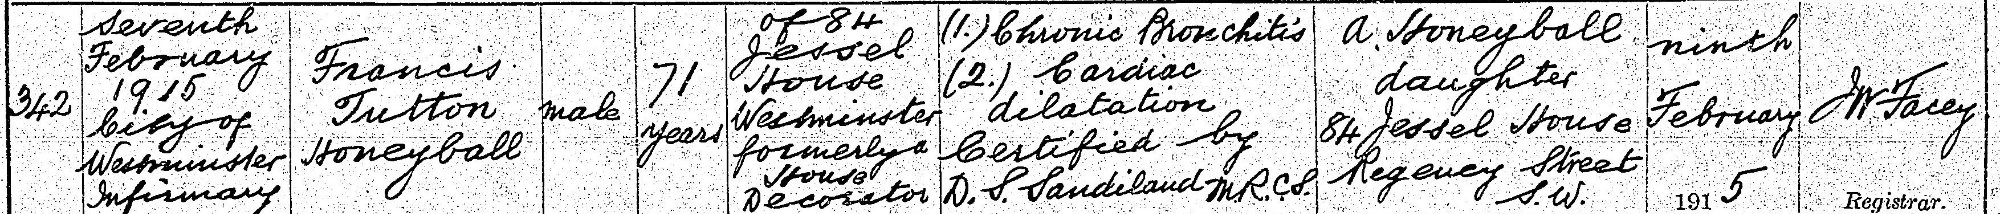 342
Seventh
February
1915
City of
Westminster
Infirmary
Francis
Tutton
Honeyball
male
71
years
of 84
Jessel
House
Westminster
formerly a
House
Decorator
(1.) Chronic Bronchitis
(2.) Cardiac
dilatation
Certified by
D. S. Sandiland M.R.C.S.
A. Honeyball
daughter
84 Jessel House
Regency Street
S.W.
ninth
February
1915
JW Facey
Registrar.